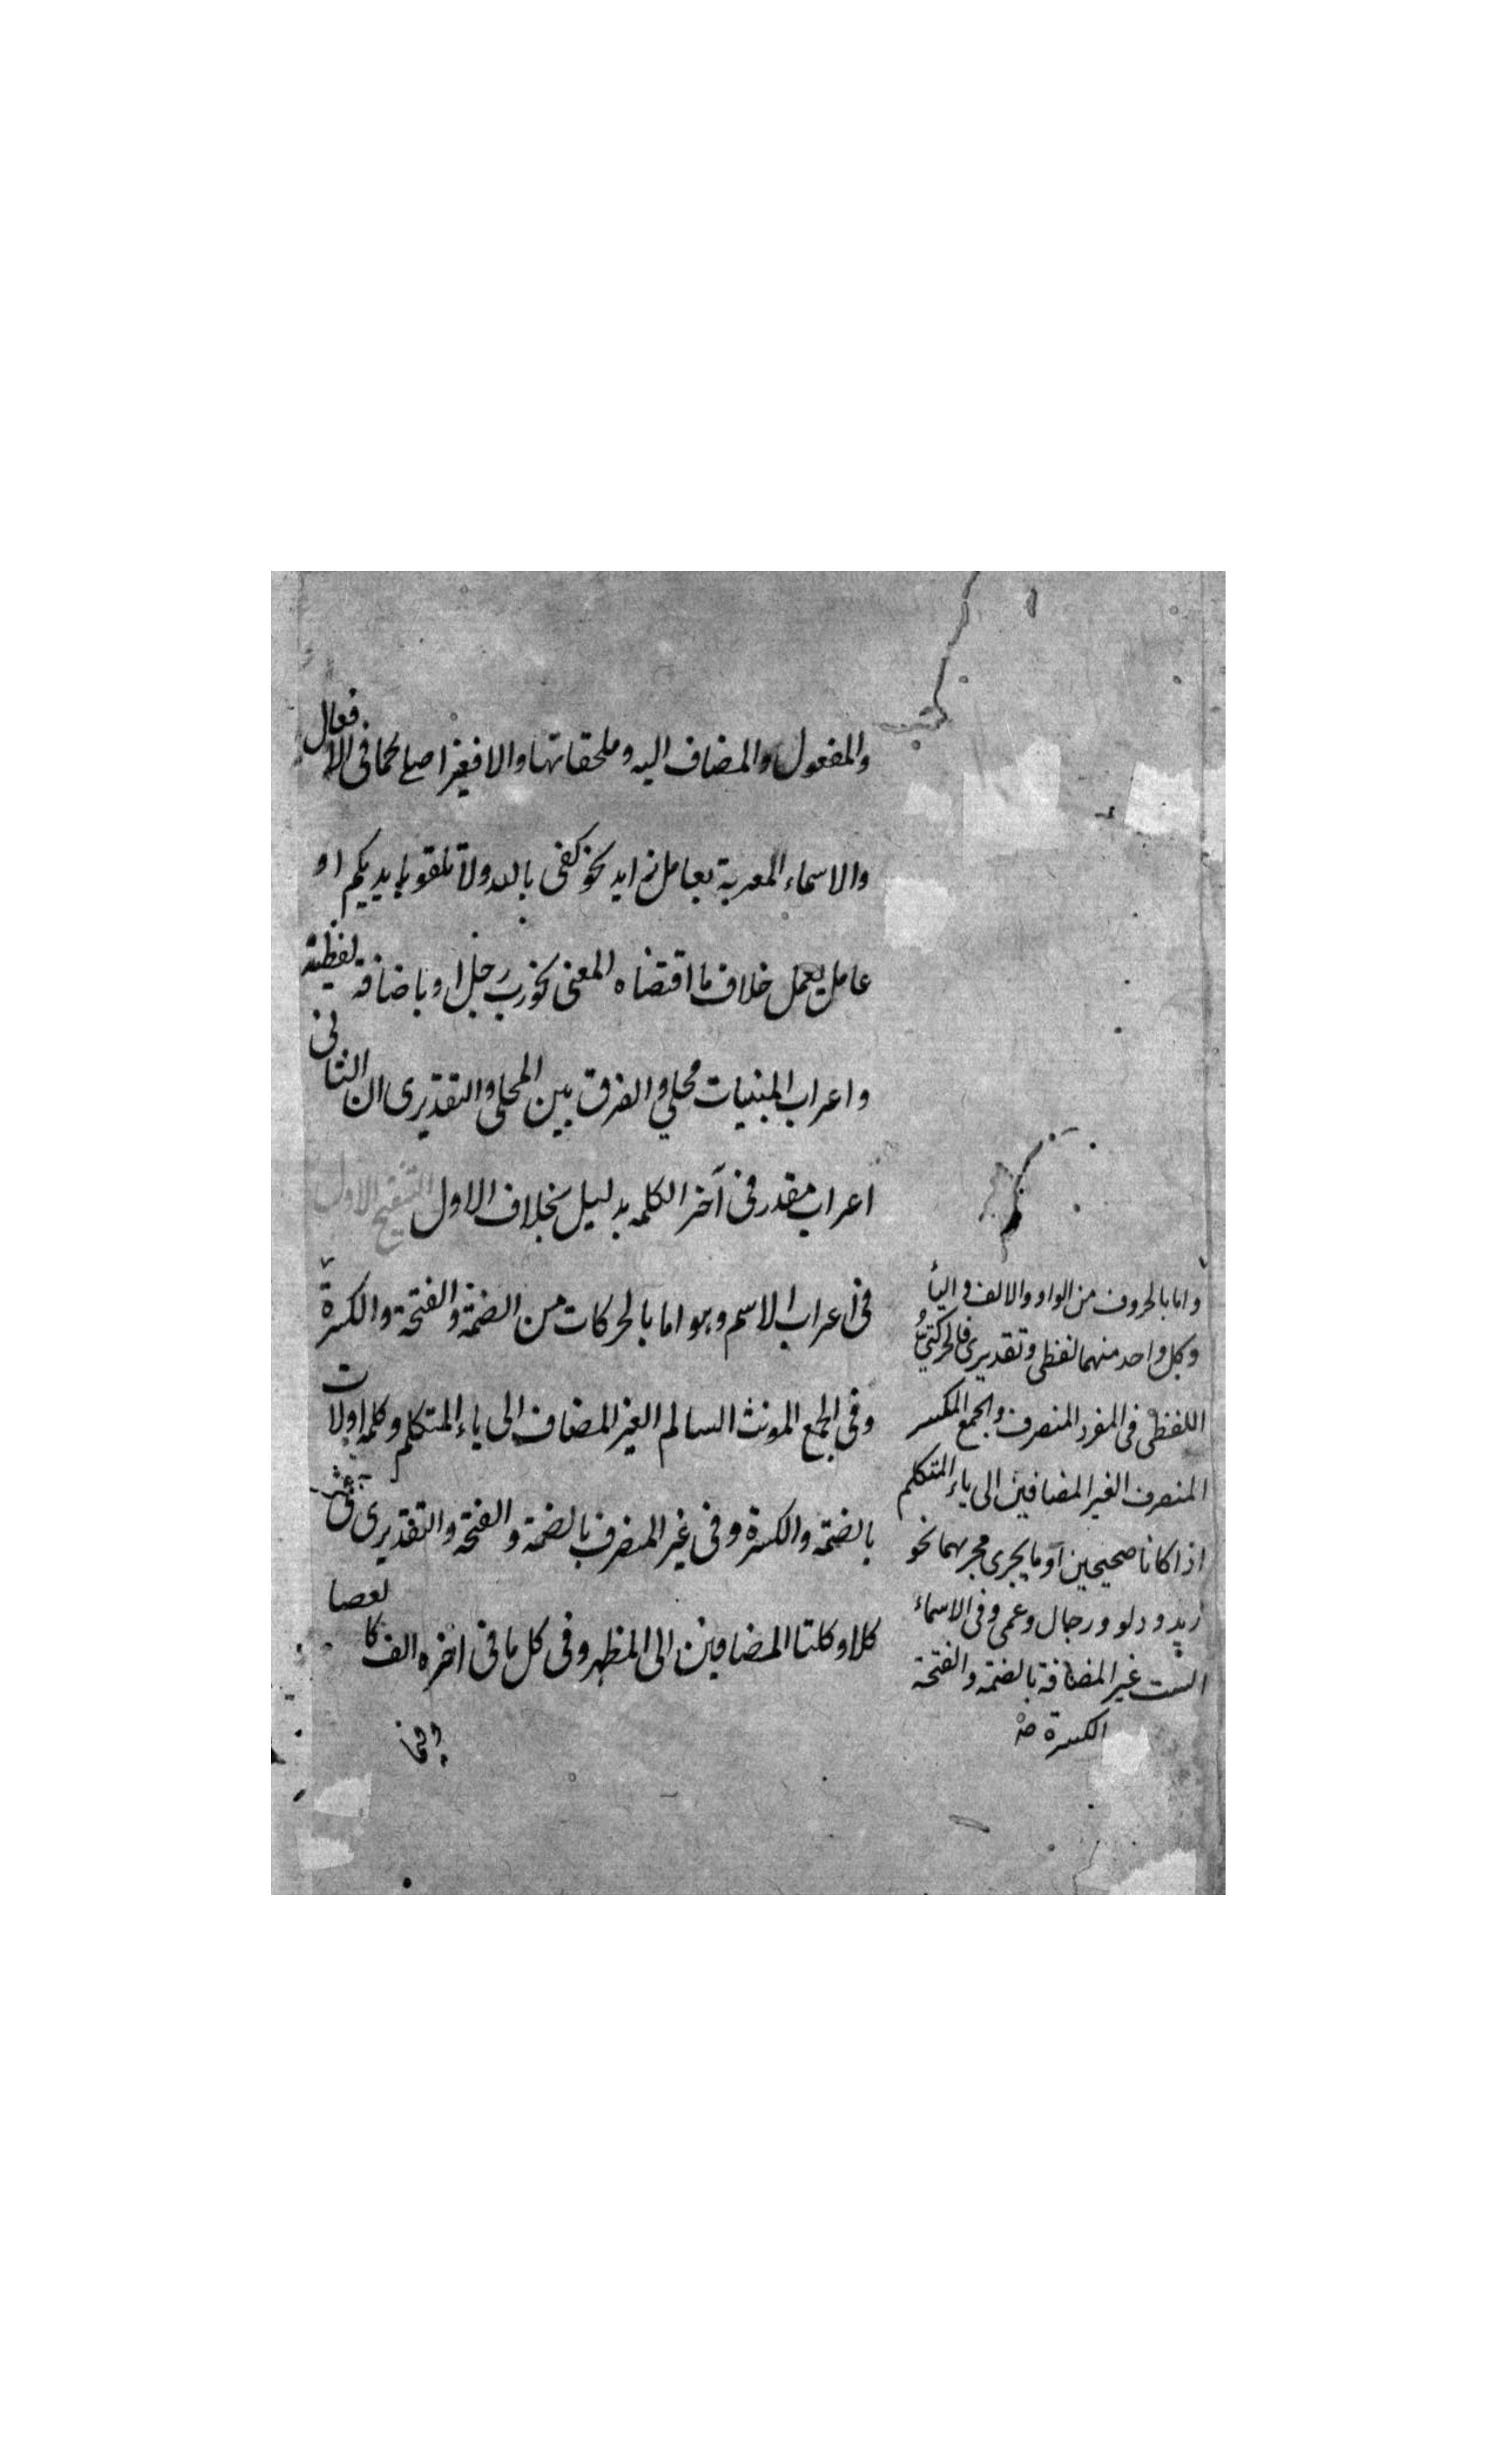 والمفعول والمضاف اليه وملحقاتها والا فغير اصلي كما في الافعال
والاسماء المعربة بعامل زايد نحو كفى بالله ولا تلقوا بايديكم او
عامل يعمل خلاف ما اقتضاه المعنى نحو رب رجل او باضافة لفظية
واعراب المبنيات محلي والفرق بين المحلي والتقديرى ان الثانى
اعراب مقدر في آخر الكلمه بدليل بخلاف الاول التنقيح الاول
فى اعراب الاسم وهو اما بالحركات من الضمة والفتحة والكسرة
وفى الجمع المونث السالم الغير المضاف الى ياء المتكلم وكلمه اولات
بالضمة والكسرة وفى غير المنصرف بالضمة والفتحة والتقديرى فى
كلا وكلتا المضافين الى المظهر وفى كل ما فى اخره الف كالعصا
واما بالحروف من الواو والالف والياء
وكل واحد منهما لفظى وتقديرى فالحركتى
اللفظى فى المفرد المنصرف والجمع المكسر
المنصرف الغير المضافين الى ياء المتكلم
اذا كانا صحيحين او ما يجرى مجريهما نحو
زيد ودلو ورجال وعمى وفى الاسماء
الست غير المضافة بالضمة والفتحة
الكسرة صح